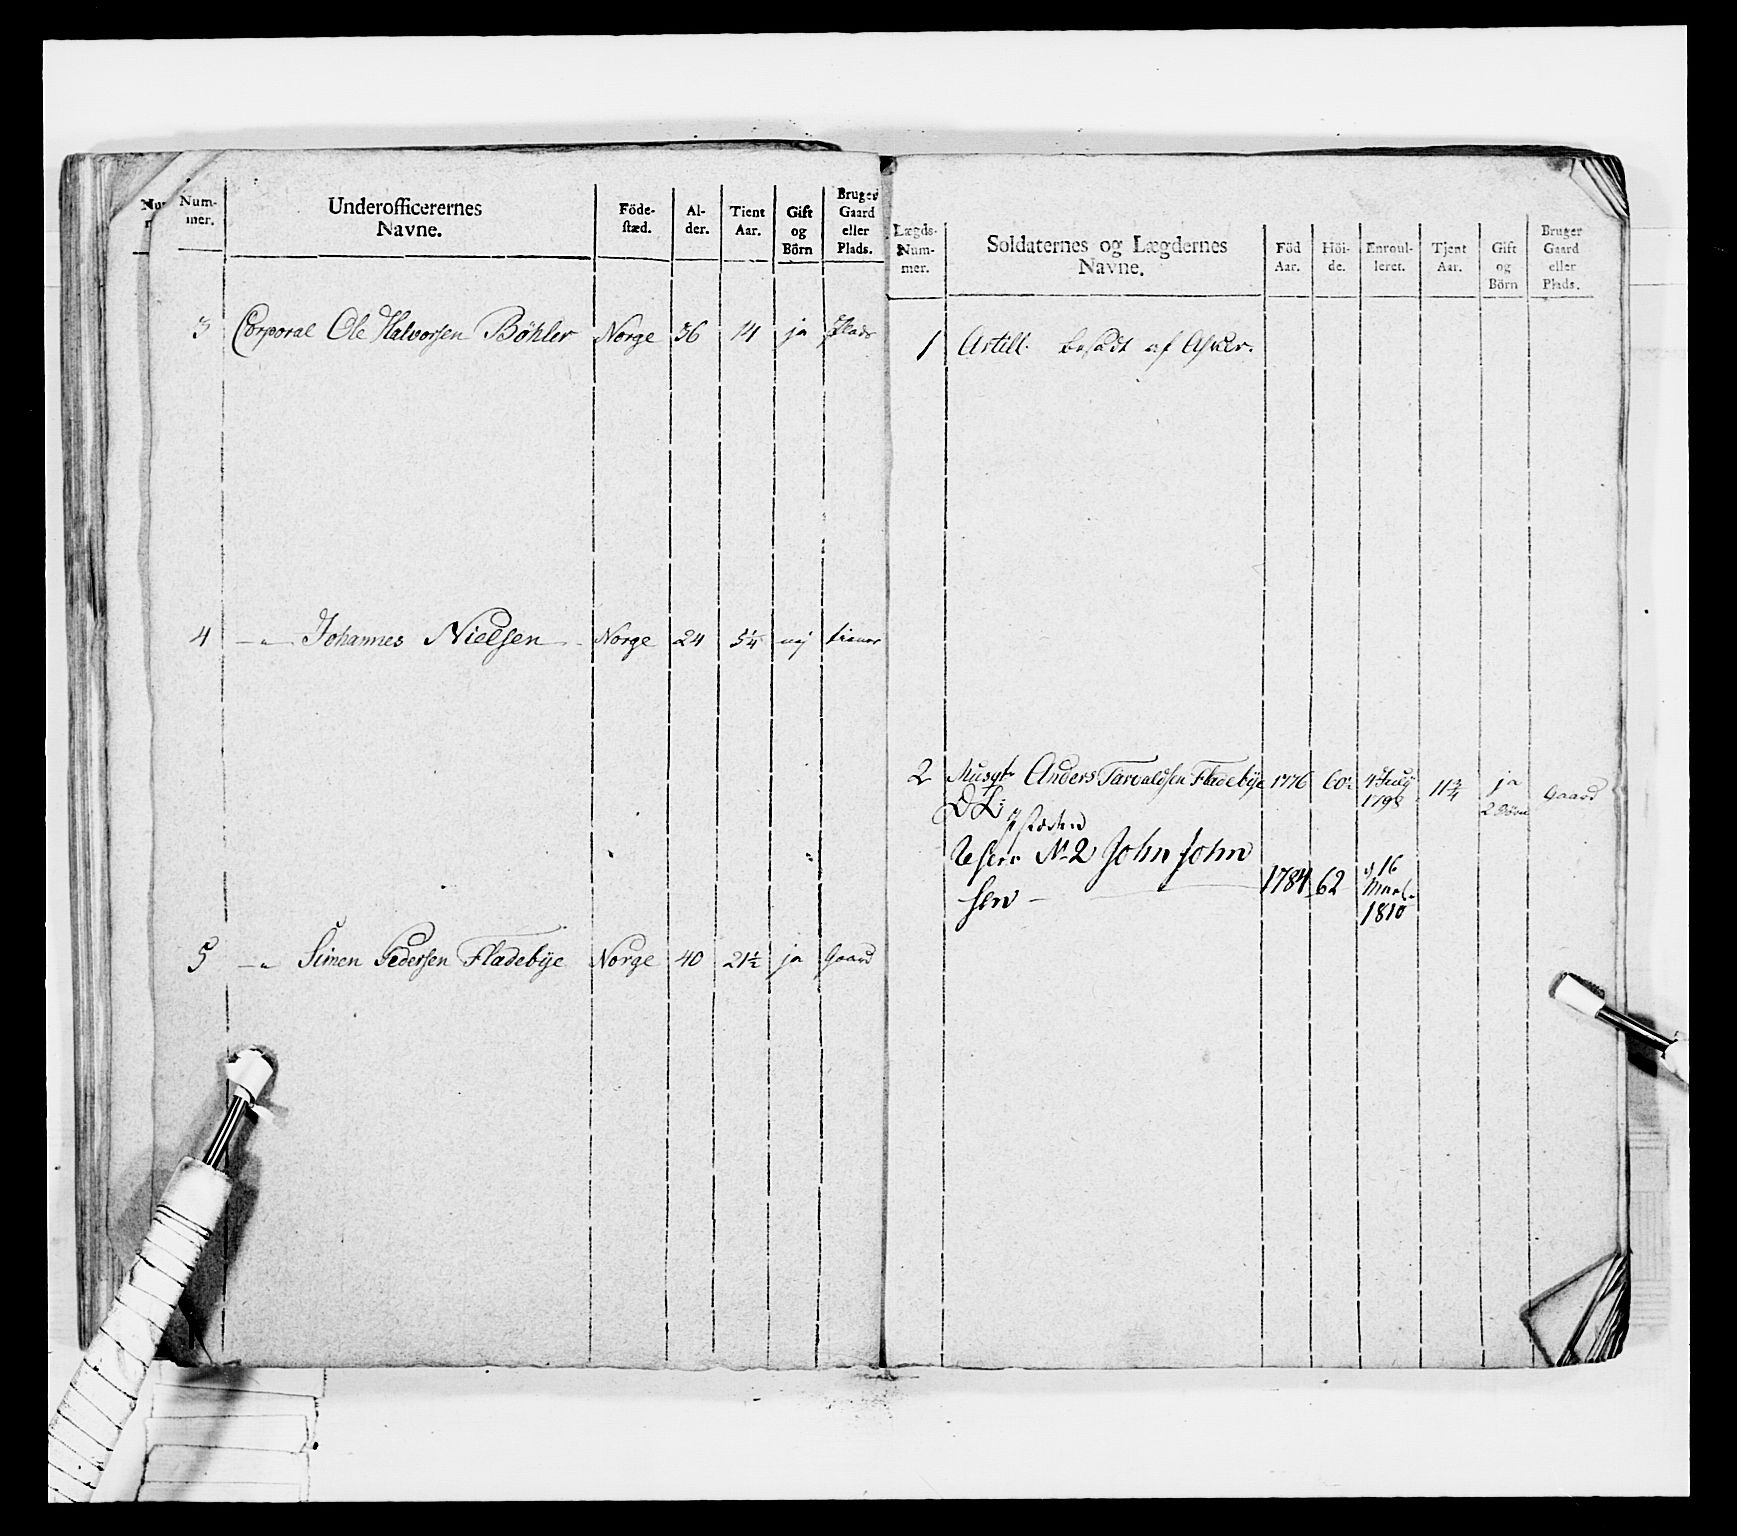 Num-
mer.
Underofficerernes
Navne.
Föde-
stæd.
Al-
der.
Tient
Aar.
Gift
og
Börn
Bruger
Gaard
eller
Plads.
3 Corporal Ole Halvorsen Böhler Norge 36 14 ja Plads
4 — " — Johannes Nielsen Norge 24 5 1/4 nej tiener
5 — " Simen Pedersen Fladebÿe Norge 40 21 1/2 ja Gaard
Lægds-
Num-
mer.
Soldaternes og Lægdernes
Navne.
Föd
Aar.
Höi-
de.
Enroul-
leret.
Tjent
Aar.
Gift
og
Börn
Bruger
Gaard
eller
Plads.
1 Artill. besadt af
2 Musqt. Anders Tarvaldsen Fladebÿe 1776 60 4 July 1798 11 3/4 ja 2 Börn Gaard
D L:
No 2 John John
sen — 1784 62 d 16 Mart. 1810